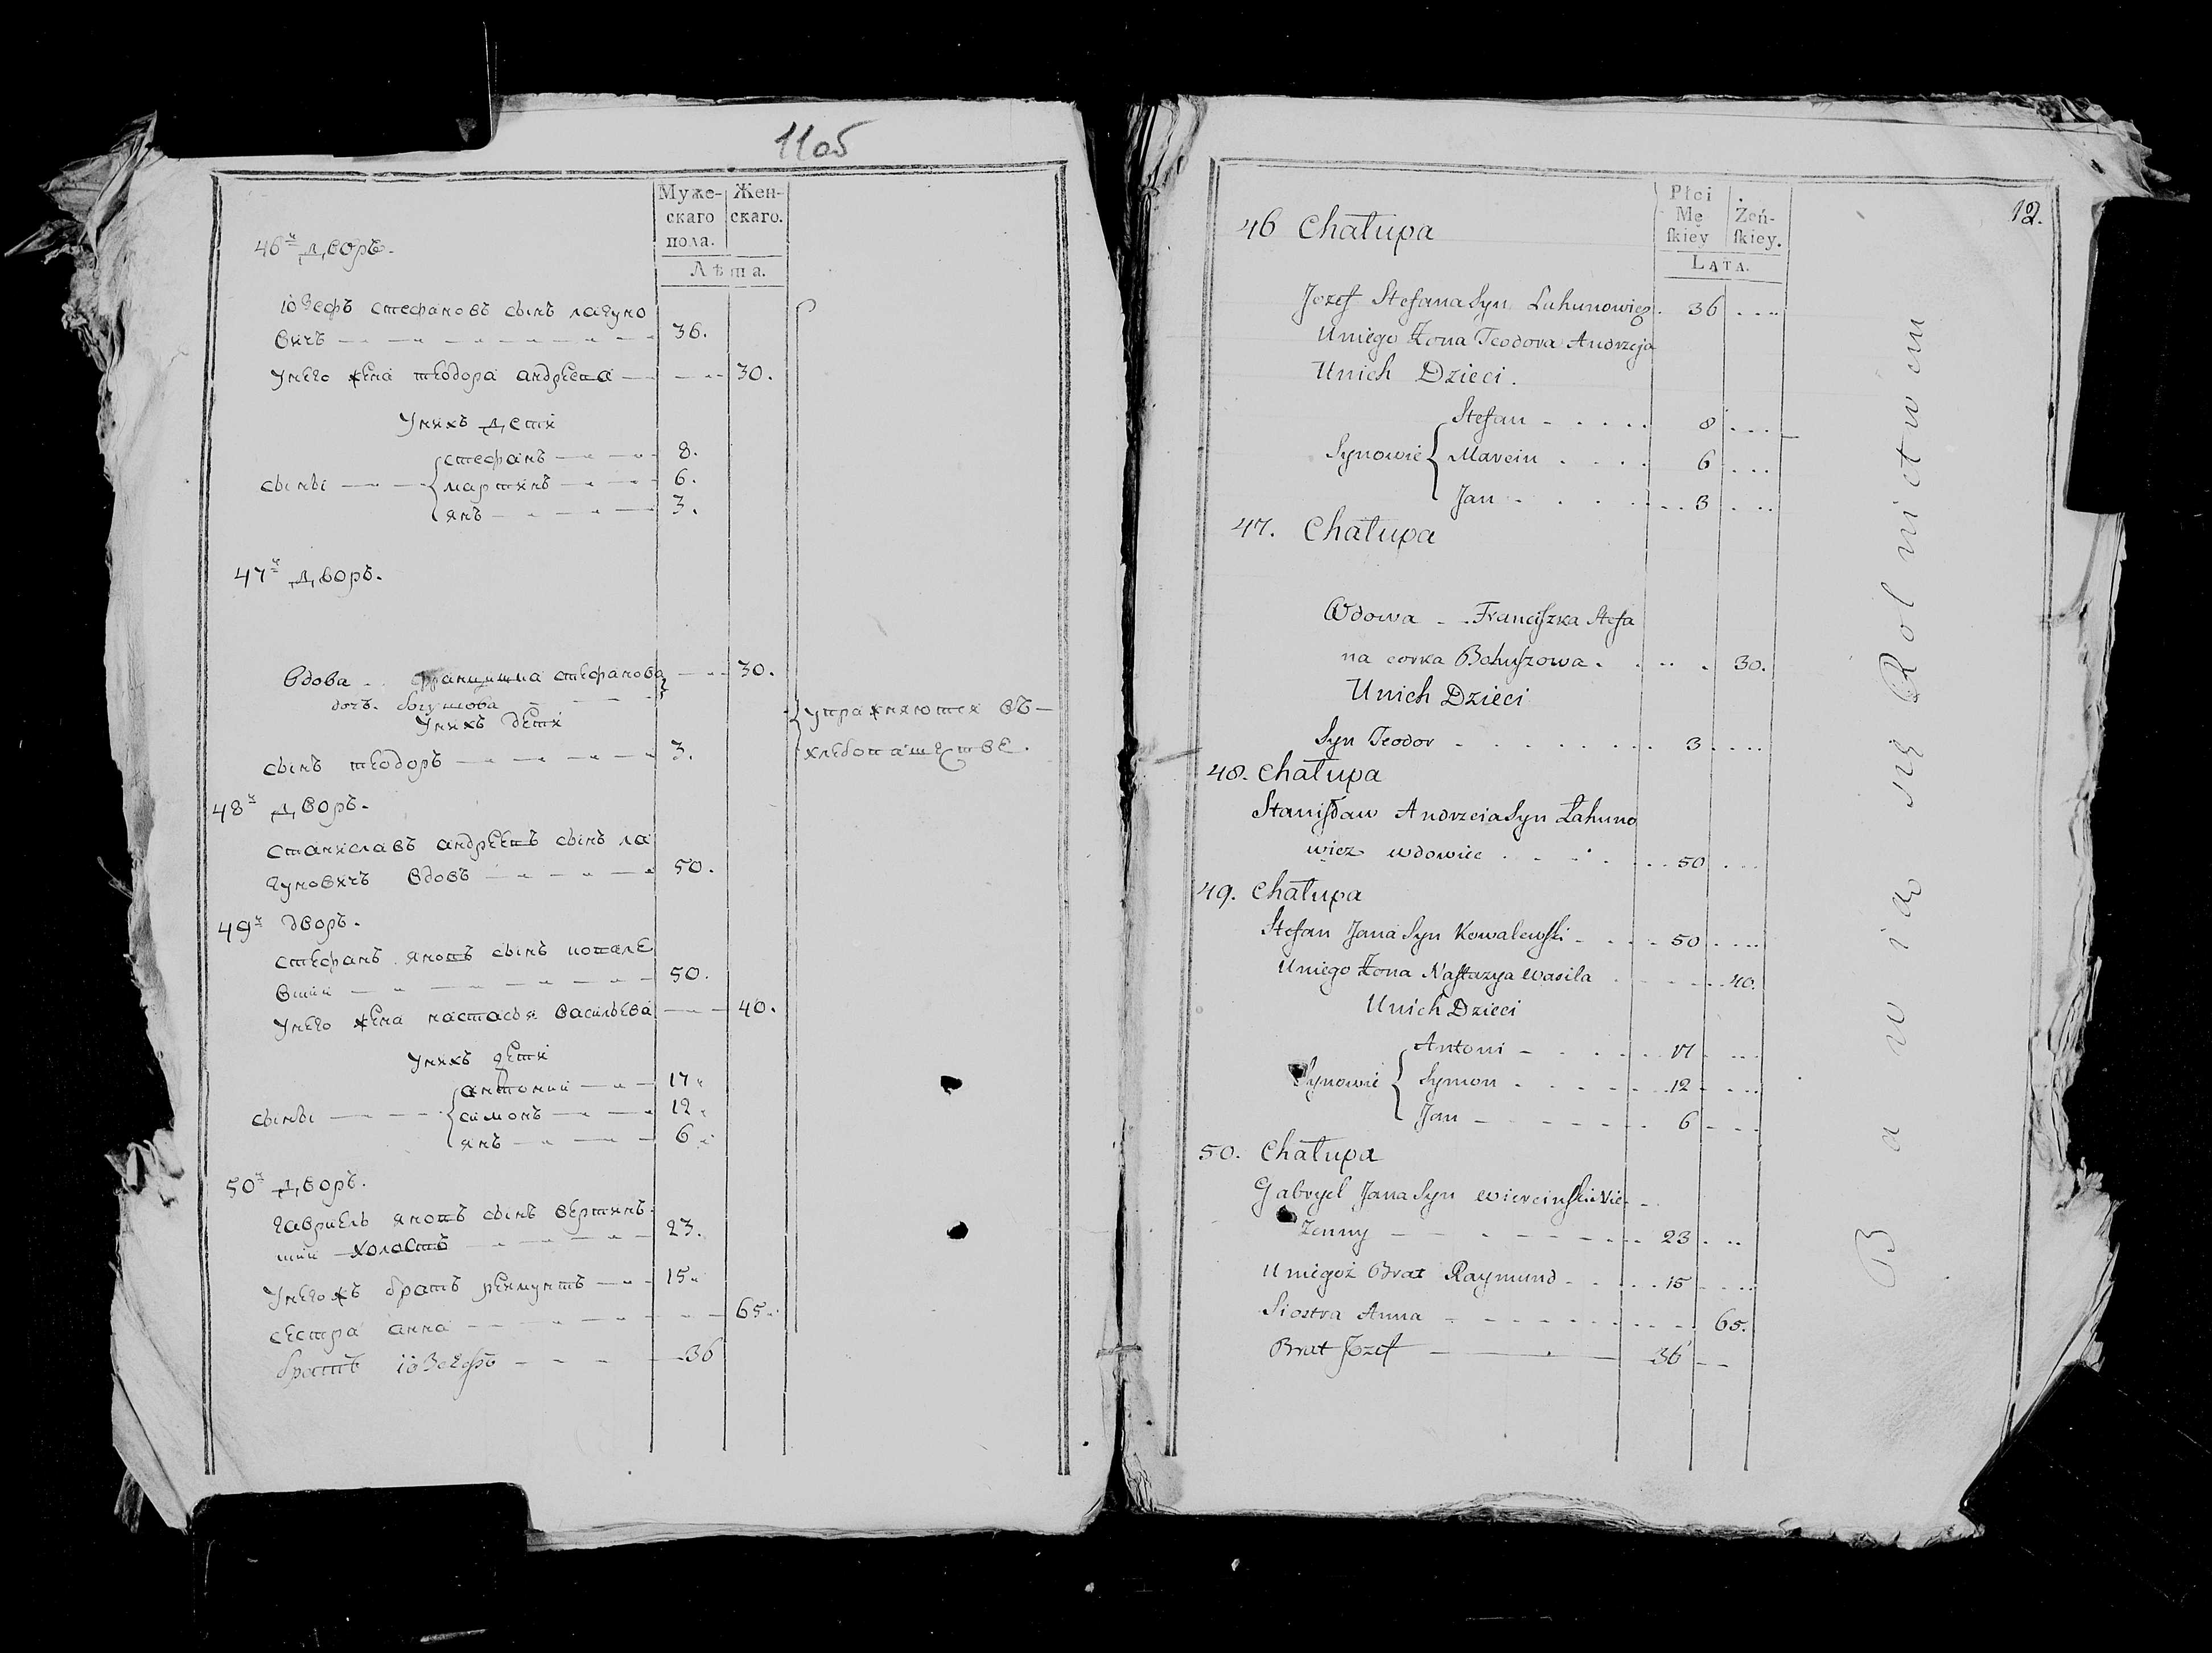 11об
Муже-
скаго
пола.
Жен-
скаго.
Лѣта.
46й дворъ.
іозефъ стефановъ сынъ лагуно
вичъ 36.
у него жена теодора андреева 30.
у нихъ дети
стефанъ 8.
сыны мартинъ 6.
янъ 3.
47й дворъ.
вдова францишка стефанова 30.
дочь богушова
у нихъ дети
сынъ теодоръ 3.
48й дворъ.
станиславъ андреевъ сынъ ла
гуновичъ вдовъ 50.
49й дворъ.
стефанъ яновъ сынъ ковале
вский 50.
у него жена настасья васильева 40.
у нихъ дети
антоний 17
сыны симонъ 12
янъ 6
50й дворъ.
гавриель яновъ сынъ вертинъ
ский холостъ 23.
у негожъ братъ реймунтъ 15
сестра анна 65
братъ іозефъ 36
упражняются въ
хлебопашестве.
12.
Płci
Mę
skiey
Żeń-
skiey.
LATA.
46 Chałupa
Jozef Stefana Syn Łahunowicz 36
U niego Żona Teodora Andrzeja
U nich Dzieci.
Stefan 8
Synowie Marcin 6
Jan 3
47. Chałupa
Wdowa Franciszka Stefa
na corka Bohuszowa 30.
U nich Dzieci
Syn Teodor 3
48. Chałupa
Stanisław Andrzeia Syn Łahuno
wicz wdowiec 50
49. Chałupa
Stefan Jana Syn Kowalewski 50
U niego Żona Nastazya Wasila 40.
U nich Dzieci
Antoni 17
Synowie Symon 12
Jan 6
50. Chałupa
Gabryel Jana Syn Wiercinski Nie
Żenny 23
U niegoż Brat Raymund 15
Siostra Anna 65.
Brat Jozef 36
Bawią się Rolnictwem